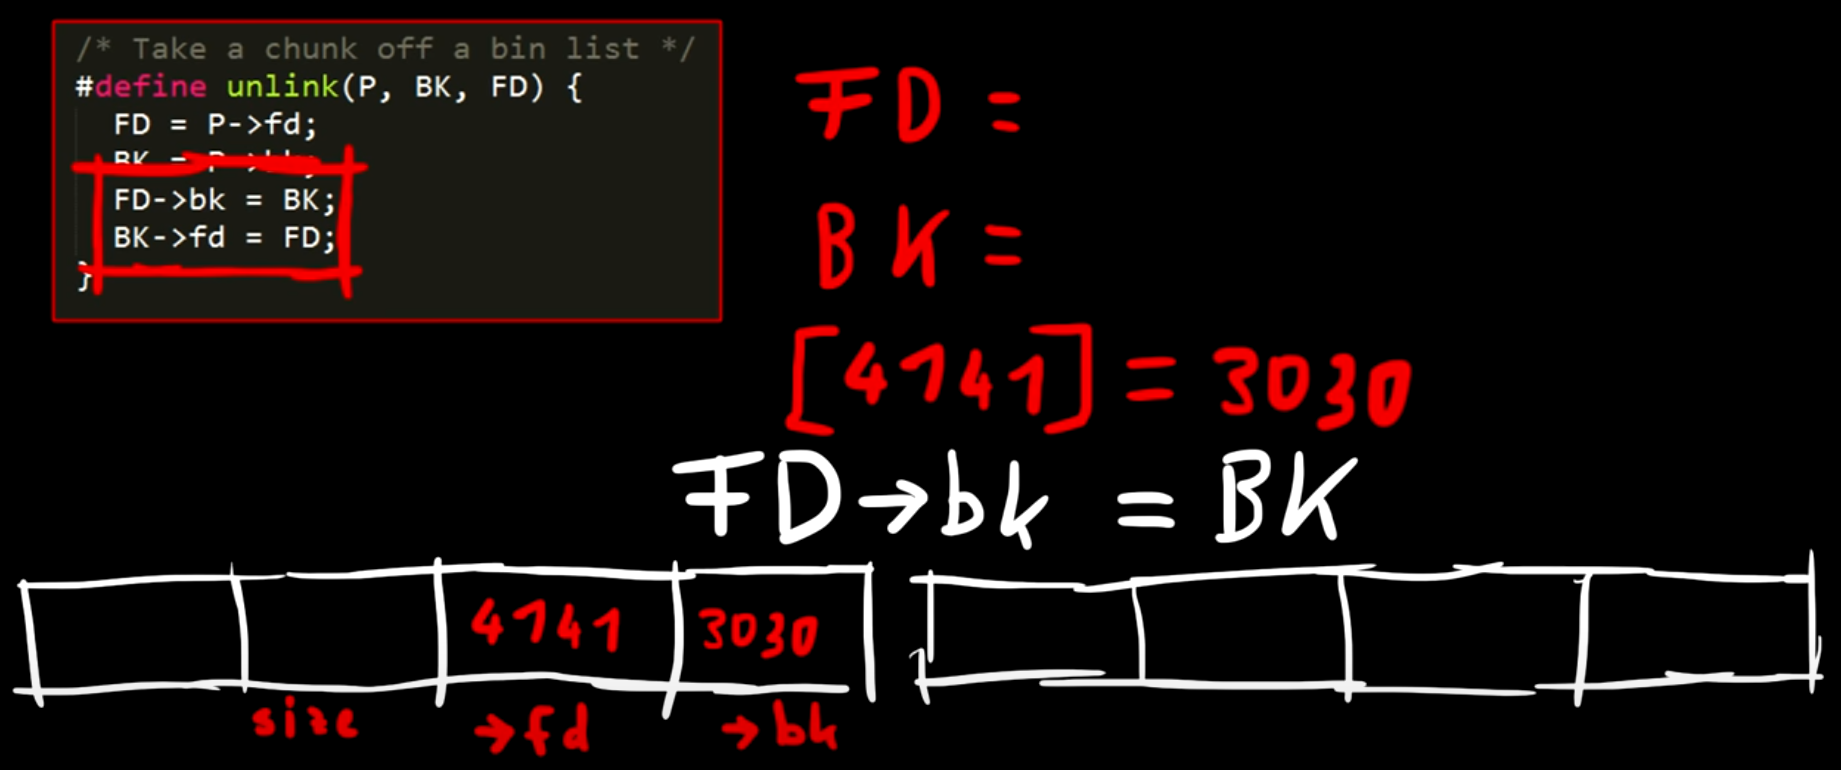 /* Take a chunk off a bin list */
#define unlink(P, BK, FD) {
FD = P->fd;
BK = P->bk;
FD->bk = BK;
BK->fd = FD;
}
FD =
BK =
[4141] = 3030
FD→bk = BK
4141 3030
size →fd →bk